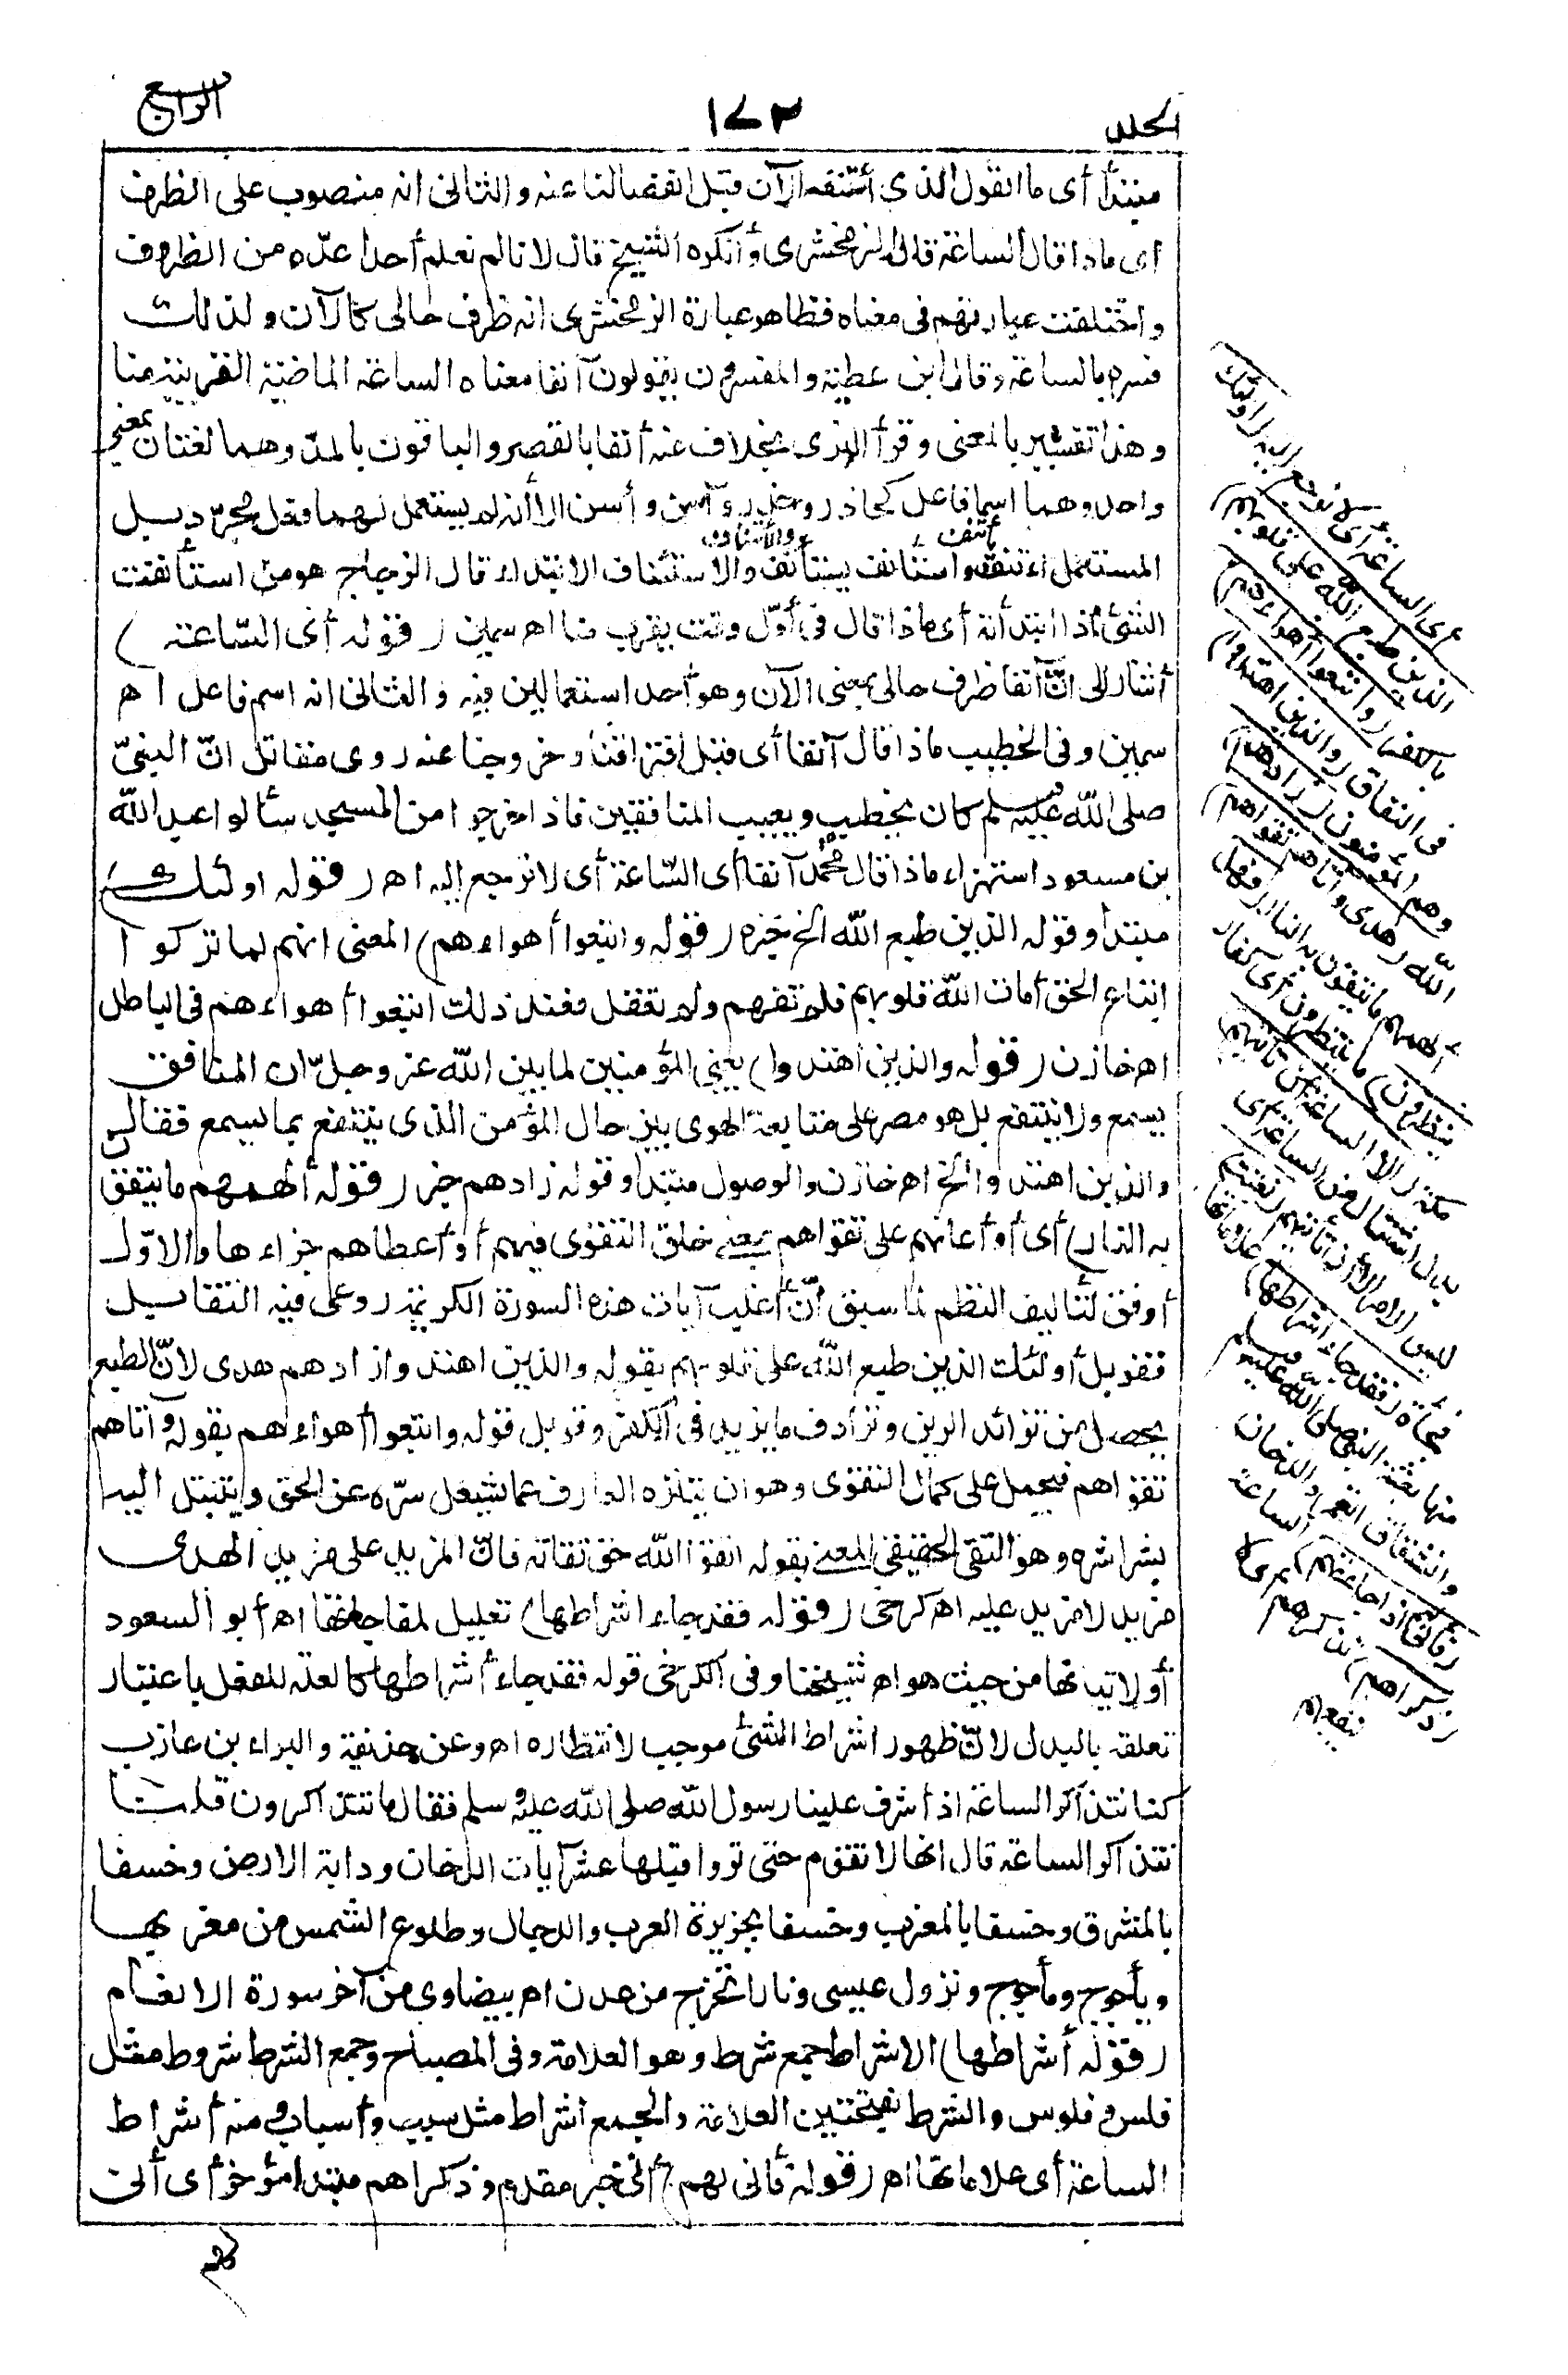 الجلد
١٧٣
الرابع
مبتدأ أى ما القول الذي أئتنفه الآن قبل انفصالنا عنه والثانى انه منصوب على الظرف
أى ماذا قال الساعة قاله الزمخشرى وأنكره الشيخ قال لانا لم نعلم أحدا عدّه من الظروف
واختلفت عبارتهم فى معناه فظاهر عبارة الزمخشرى انه ظرف حالى كالآن ولذلك
فسره بالساعة وقال ابن عطية والمفسرون يقولون آنفا معناه الساعة الماضية القريبة منا
وهذا تفسير بالمعنى وقرأ البزى بخلاف عنه أنفا بالقصر والباقون بالمدّ وهما لغتان بمعنى
واحد وهما اسما فاعل كحاذر وحذر وآسن وأسن الا أنه لم يستعمل لهما فعل مجرّد بل
المستعمل ائتنف يأتنف واستأنف يستأنف والائتناف والاستئناف الابتداء قال الزجاج هو من استأنفت
الشئ اذا ابتدأته أى ماذا قال فى أوّل وقت يقرب منا اهـ سمين (قوله أى الساعة)
أشار الى انّ آنفا ظرف حالى بمعنى الآن وهو أحد استعمالين فيه والثانى انه اسم فاعل اهـ
سمين وفى الخطيب ماذا قال آنفا أى قبل افتراقنا وخروجنا عنه روى مقاتل انّ النبىّ
صلى الله عليه وسلم كان يخطب ويعيب المنافقين فاذا خرجوا من المسجد سألوا عبد الله
بن مسعود استهزاء ماذا قال محمد آنفا أى الساعة أى لا نرجع إليه اهـ (قوله اولئك)
مبتدأ وقوله الذين طبع الله الخ خبره (قوله واتبعوا أهواءهم) المعنى انهم لما تركوا
اتباع الحق أمات الله قلوبهم فلم تفهم ولم تعقل فعند ذلك اتبعوا أهواءهم فى الباطل
اهـ خازن (قوله والذين اهتدوا) يعنى المؤمنين لما بين الله عز وجلّ ان المنافق
يسمع ولا ينتفع بل هو مصر على متابعة الهوى بين حال المؤمن الذى ينتفع بما يسمع فقال
والذين اهتدوا الخ اهـ خازن والموصول مبتدأ وقوله زادهم خبر (قوله ألهمهم ما يتقون
به النار) أى أو أعانهم على تقواهم بمعنى خلق التقوى فيهم أو أعطاهم جزاءها والاوّل
أوفق لتأليف النظم لما سبق أنّ أغلب آيات هذه السورة الكريمة روعى فيه التقابل
فقوبل أولئك الذين طبع الله على قلوبهم بقوله والذين اهتدوا زادهم هدى لانّ الطبع
يحصل من تزائد الرين وترادف ما يزيد فى الكفر وقوبل قوله واتبعوا أهواءهم بقوله وآتاهم
تقواهم فيحمل على كمال التقوى وهو ان يتنزه العارف عما يشغل سرّه عن الحق ويتبتل اليه
بشراشره وهو التقى الحقيقى المعنى بقوله اتقوا الله حق تقاته فانّ المزيد على مزيد الهدى
مزيد لا مزيد عليه اهـ كرخى (قوله فقد جاء اشراطها) تعليل لمفاجأتها اهـ أبو السعود
أو لاتيانها من حيث هو اهـ شيخنا وفى الكرخى قوله فقد جاء أشراطها كالعلة للفعل باعتبار
تعلقه بالبدل لانّ ظهور اشراط الشئ موجب لانتظاره اهـ وعن حذيفة والبراء بن عازب
كنا نتذاكر الساعة اذ أشرف علينا رسول الله صلى الله عليه وسلم فقال ما تتذاكرون قلنا
نتذاكر الساعة قال انها لا تقوم حتى تروا قبلها عشر آيات الدخان ودابة الارض وخسفا
بالمشرق وخسفا بالمغرب وخسفا بجزيرة العرب والدجال وطلوع الشمس من مغربها
ويأجوج ومأجوج ونزول عيسى ونارا تخرج من عدن اهـ بيضاوى من آخر سورة الانعام
(قوله أشراطها) الاشراط جمع شرط وهو العلامة وفى المصباح وجمع الشرط شروط مثل
فلس وفلوس والشرط بفتحتين العلامة والجمع اشراط مثل سبب وأسباب ومنه أشراط
الساعة أى علاماتها اهـ (قوله فأنى لهم) أنى خبر مقدم وذكراهم مبتدا مؤخر أى أنى
لهم
أى الساعة أى لا نرجع اليه (اولئك
الذين طبع الله على قلوبهم)
بالكفر (واتبعوا أهواءهم)
فى النفاق (والذين اهتدوا)
وهم المؤمنون (زادهم)
الله (هدى وآتاهم تقواهم)
ألهمهم ما يتقون به النار (فهل
ينظرون) ما ينتظرون أى كفار
مكة (الا الساعة أن تأتيهم)
بدل اشتمال من الساعة أى
ليس الامر الا أن تأتيهم (بغتة)
فجأة (فقد جاء اشراطها) علاماتها
منها بعثة النبى صلى الله عليه وسلم
وانشقاق القمر والدخان
(فأنى لهم اذا جاءتهم) الساعة
(ذكراهم) تذكرهم أى لا
ينفعهم